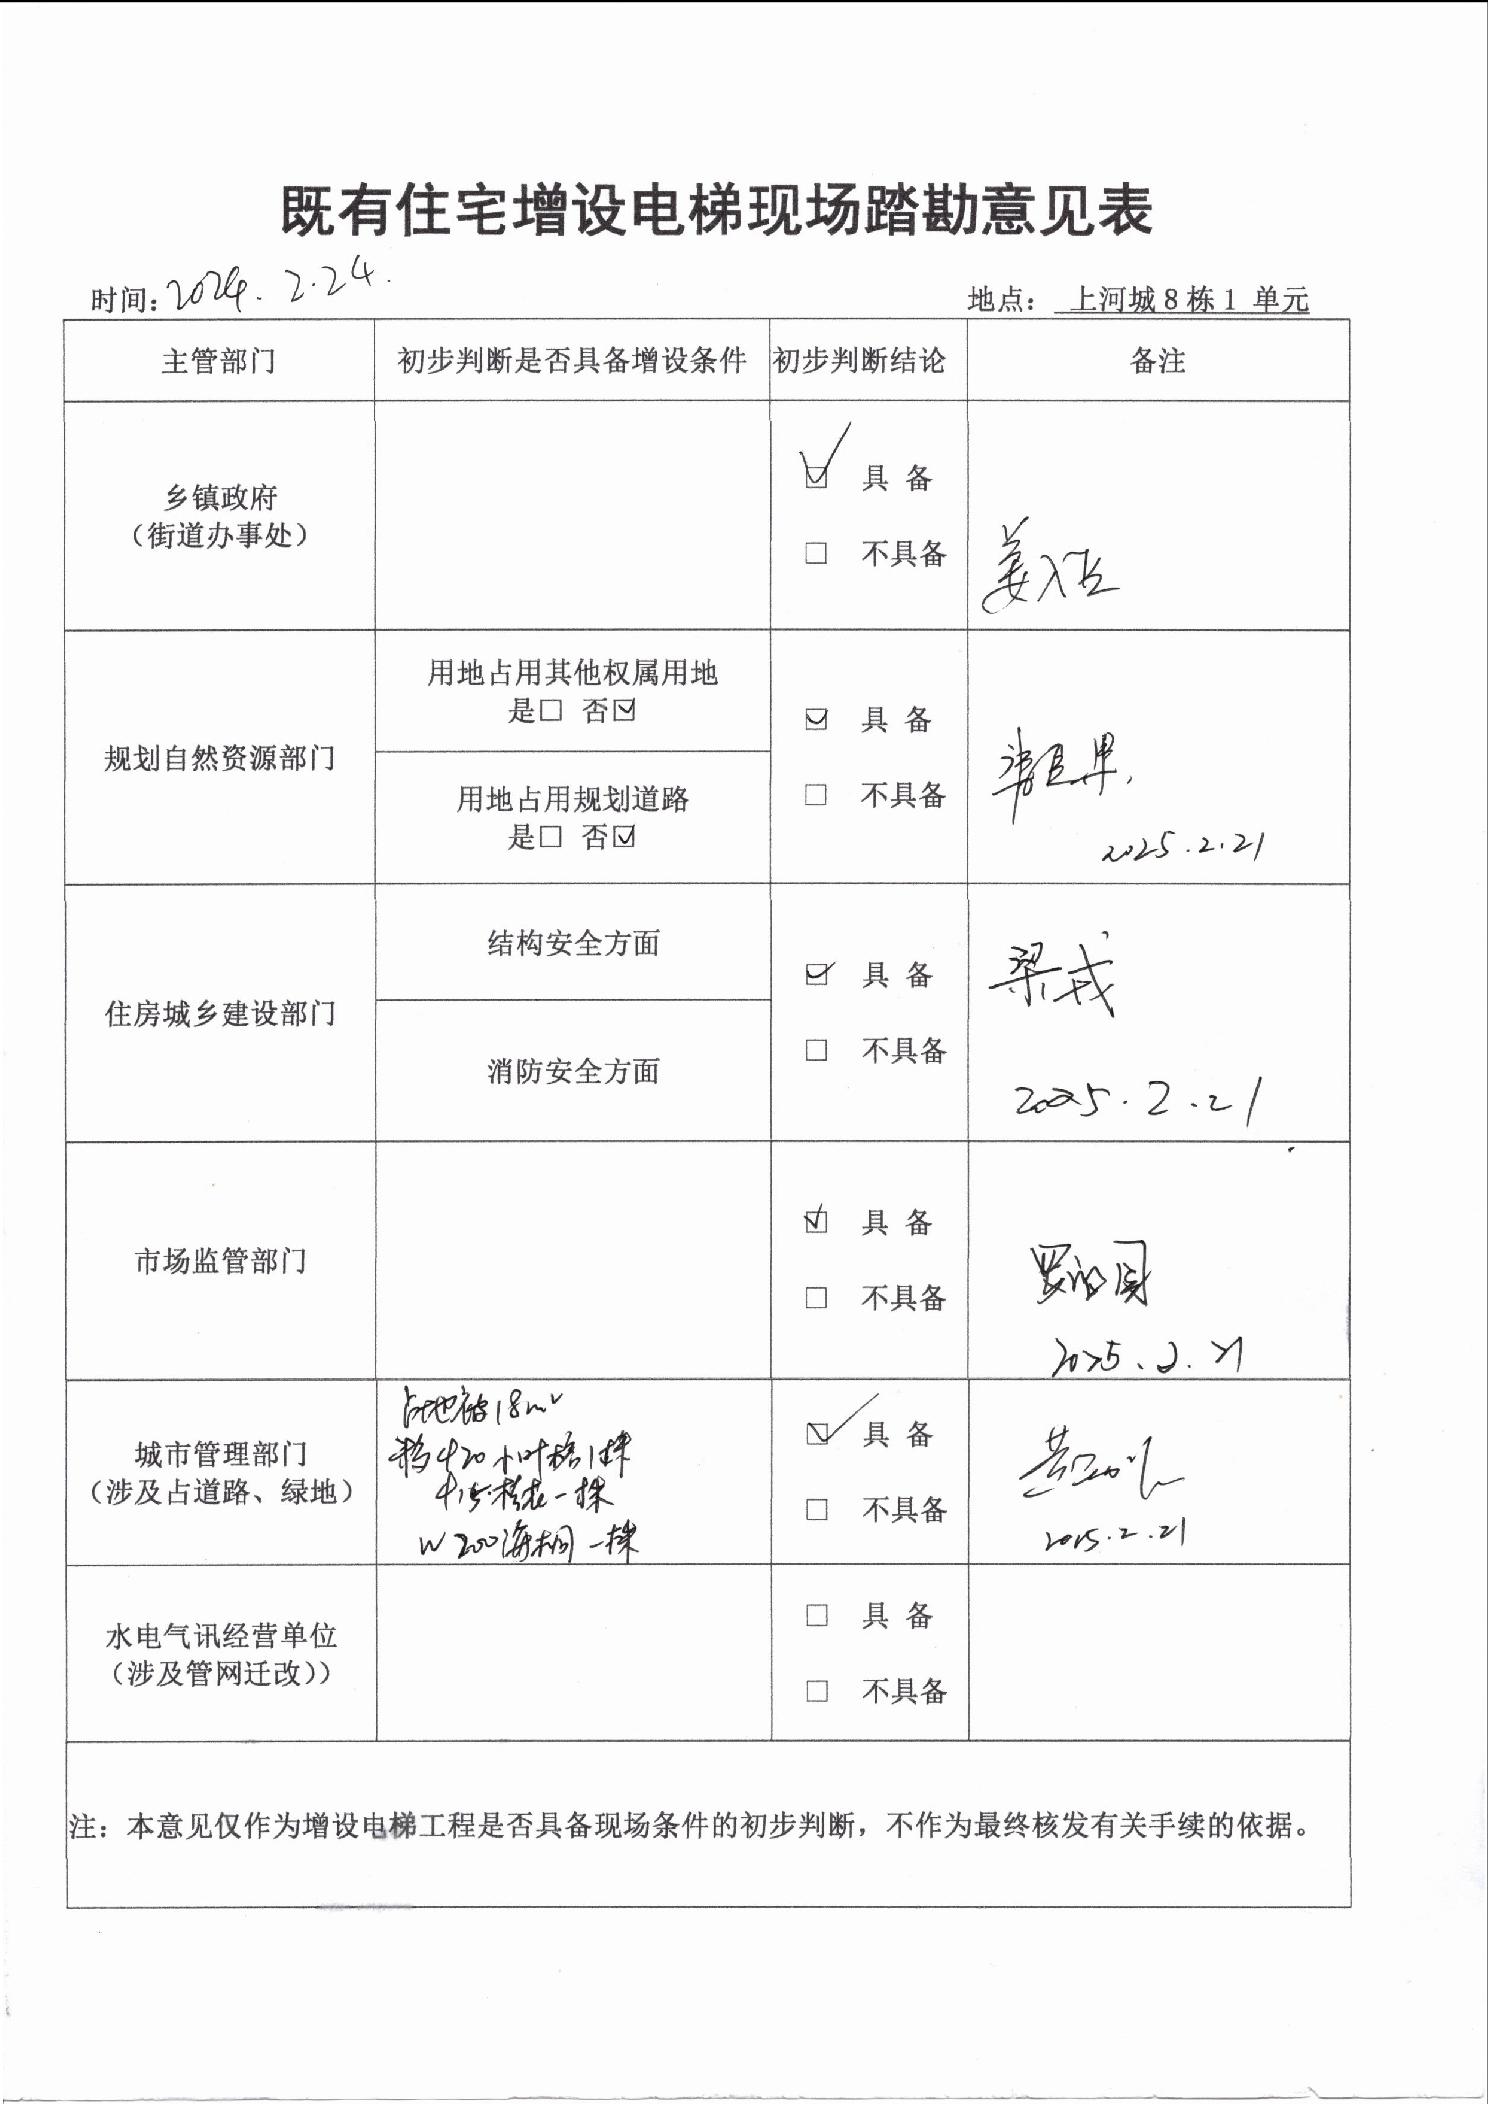 既有住宅增设电梯现场踏勘意见表
时间: 2024. 2.24.
地点: 上河城8栋1 单元
主管部门 初步判断是否具备增设条件 初步判断结论 备注
乡镇政府
（街道办事处）
☑ 具 备
□ 不具备
规划自然资源部门
用地占用其他权属用地
是□ 否☑
用地占用规划道路
是□ 否☑
☑ 具 备
□ 不具备
2025.2.21
住房城乡建设部门
结构安全方面
消防安全方面
☑ 具 备
□ 不具备
梁戎
2025.2.21
市场监管部门
☑ 具 备
□ 不具备
2025.2.21
城市管理部门
（涉及占道路、绿地）
占地 18m²
20小叶榕1株
桂花一株
W200海桐一株
☑ 具 备
□ 不具备
2025.2.21
水电气讯经营单位
（涉及管网迁改））
□ 具 备
□ 不具备
注：本意见仅作为增设电梯工程是否具备现场条件的初步判断，不作为最终核发有关手续的依据。